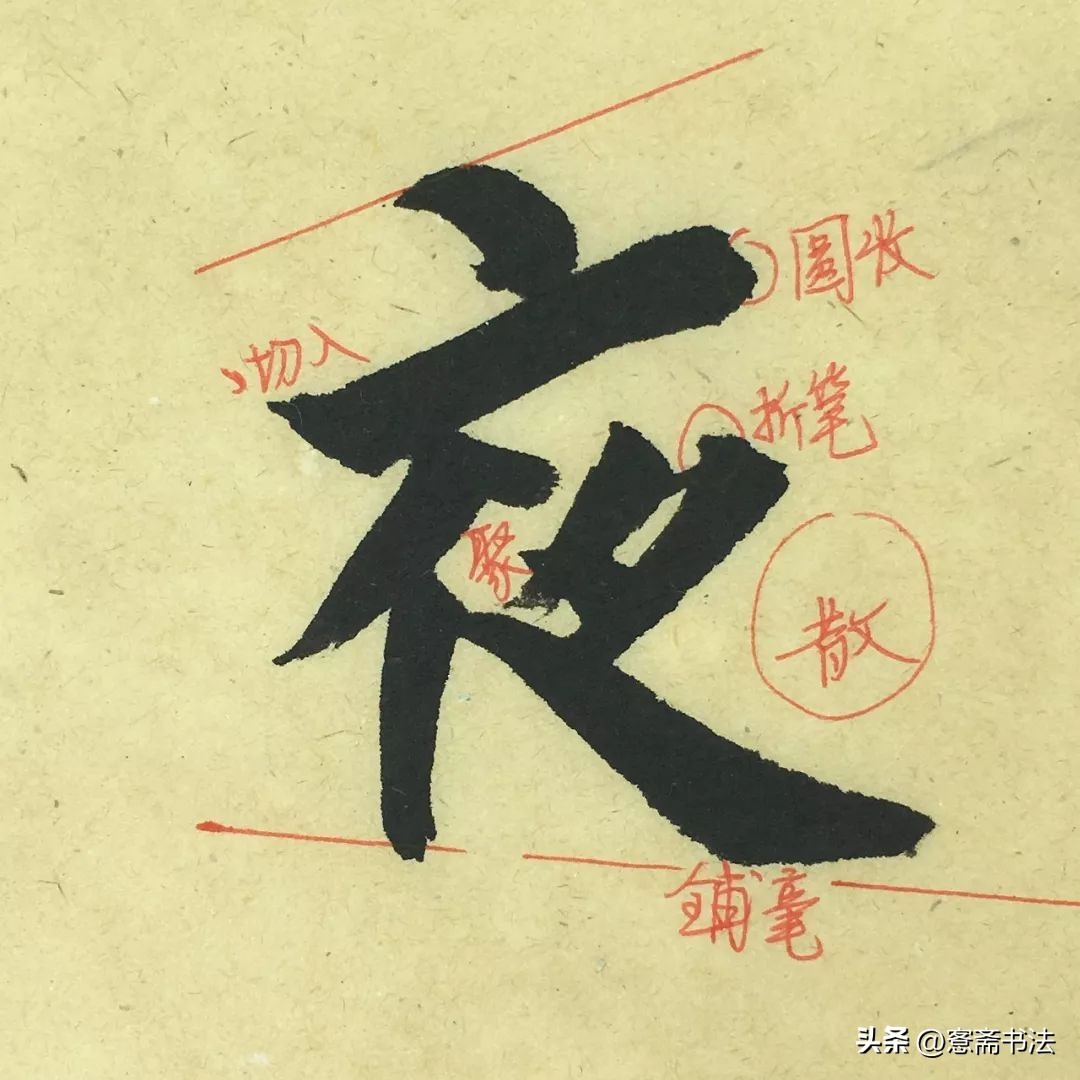 夜
圆收
切入
折笔
聚
散
铺毫
头条 @窓斋书法